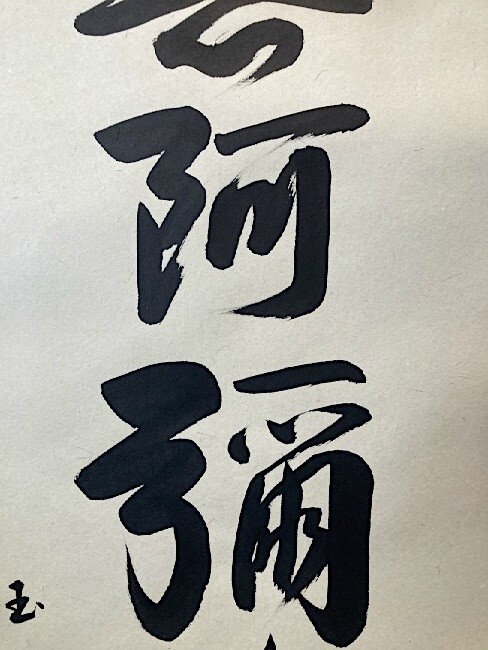 阿彌
玉